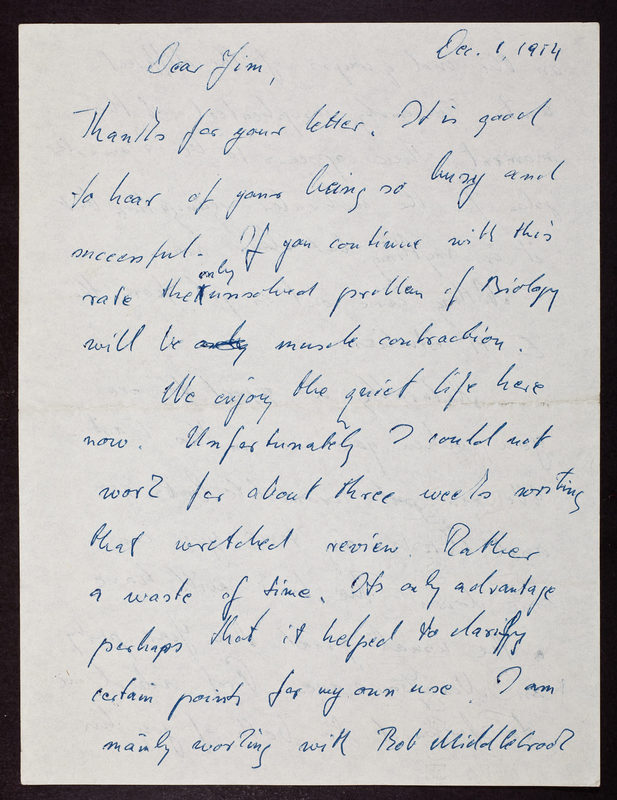 Dec. 1, 1954
Dear Jim,
Thanks for your letter. It is good
to hear of your being so busy and
successful. If you continue with this
rate the only unsolved problem of Biology
will be only muscle contraction.
We enjoy the quiet life here
now. Unfortunately I could not
work for about three weeks writing
that wretched review. Rather
a waste of time. Its only advantage
perhaps that it helped to clarify
certain points for my own use. I am
mainly working with Bob Middlebrook